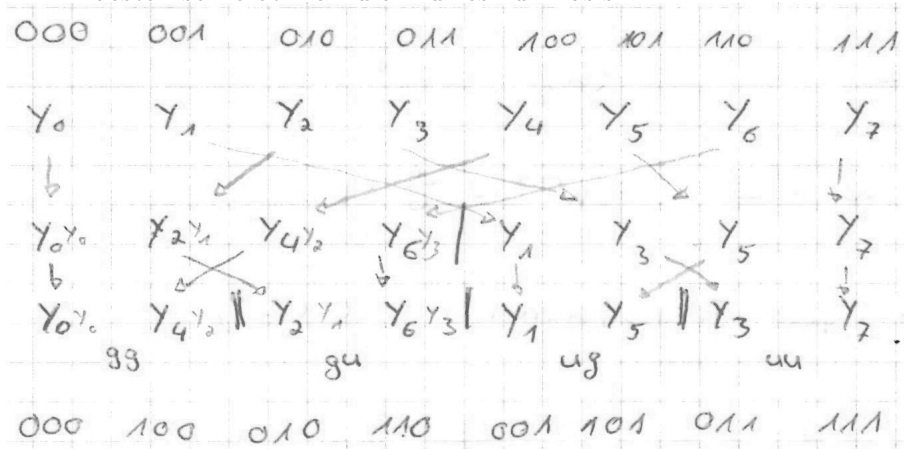 000 001 010 011 100 101 110 111
Y₀ Y₁ Y₂ Y₃ Y₄ Y₅ Y₆ Y₇
Y₀y₀ Y₂y₁ Y₄y₂ Y₆y₃ Y₁ Y₃ Y₅ Y₇
Y₀y₀ Y₄y₂ Y₂y₁ Y₆y₃ Y₁ Y₅ Y₃ Y₇
gg gu ug uu
000 100 010 110 001 101 011 111